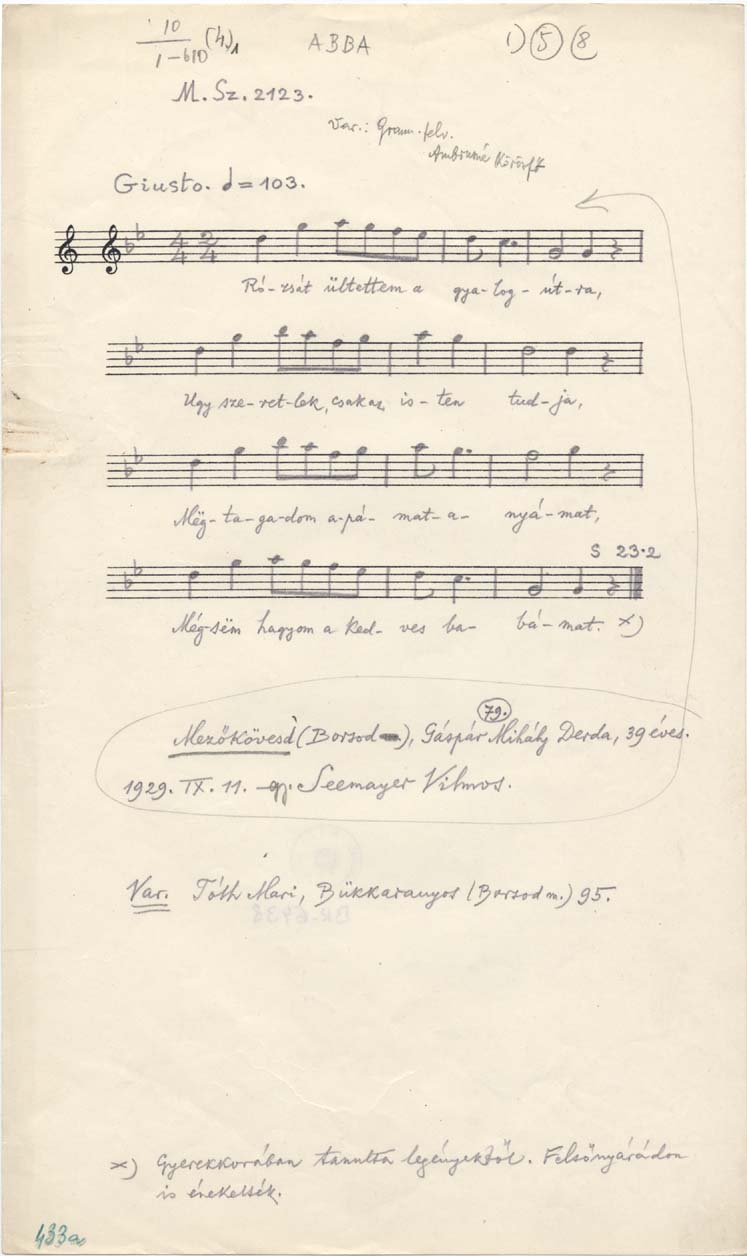 10
1-610 (4.)1 ABBA 1) 5 (8
M. Sz. 2123.
Var.: Gramm. felv.
Giusto. = 103.
4 2
4 4
Ró-zsát ültettem a gya-log-út-ra,
Ugy sze-ret-lek, csak az is-ten tud-ja,
Mëg-ta-ga-dom a-pá-mat-a-nyá-mat,
S 23.2
Még-sëm hagyom a ked-ves ba-bá-mat. x)
79.
Mezőkövesd (Borsod), Gáspár Mihály Derda, 39 éves.
1929. IX. 11. gy. Seemayer Vilmos.
Var. Tóth Mari, Bükkaranyos (Borsod m.) 95.
x) Gyerekkorában tanulta legényektől. Felsőnyárádon
is énekelték.
433a